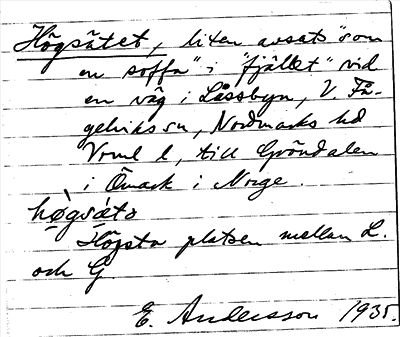 Högsätet, liten avsats "som
en soffa" i "fjället" vid
en väg i Låssbyn, V. Få-
gelviks sn, Nordmarks hd
Vrml l, till Gröndalen
i Ömark i Norge.
hø̀gsä́tə
Högsta platsen mellan L.
och G.
E. Andersson 1935.